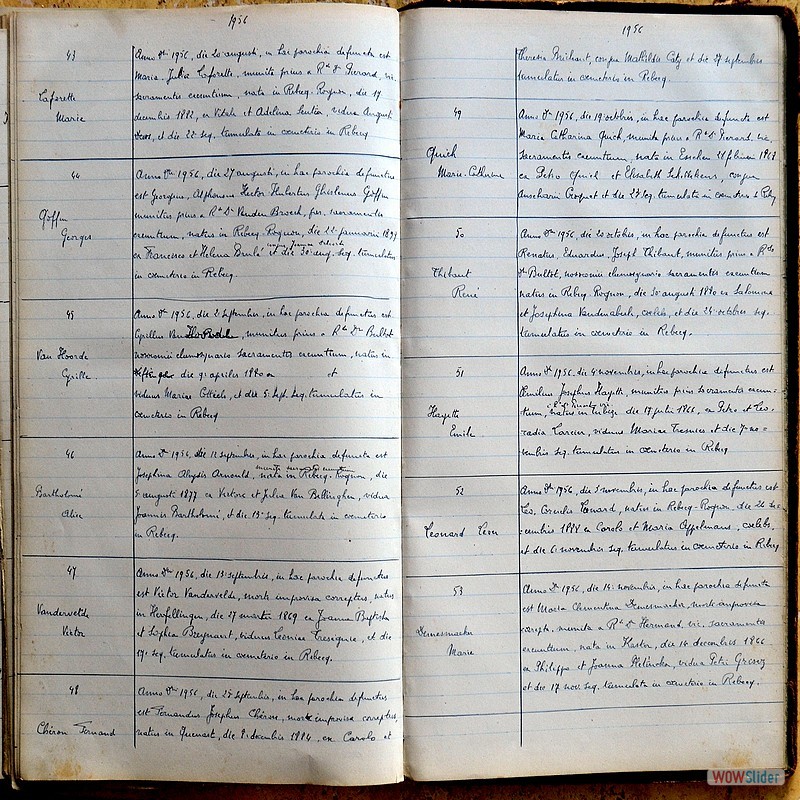 1956
43
Laforette
Marie
Anno Dni 1956, die 20 augusti, in hac parochia defuncta est
Maria Julia Laforette, munita prius a Rdo Do Gerard, vic.
sacramentis exeuntium, nata in Rebecq-Rognon, die 17
decembris 1882, ex Vitale et Adelina Sentier, vidua August
et die 22 seq. tumulata in coemeterio in Rebecq
44
Goffin
Georges
Anno Dni 1956, die 27 augusti, in hac parochia defunctus
est Georgius, Alphonsus Hector Hubertus Ghislenus Goffin
munitus prius a Rdo Do Vanden Broeck, par. sacramentis
exeuntium, natus in Rebecq-Rognon, die 22 januarii 1899
ex Francisco et Helena Brulé et die 30 aug. seq. tumulatus
in coemeterio in Rebecq
45
Van Hoorde
Cyrille
Anno Dni 1956, die 2 septembris, in hac parochia defunctus est
Cyrillus Van Hoorde, munitus prius a Rdo Do Bultot
nosocomii eleemosynario sacramentis exeuntium, natus in
die 9 aprilis 1880 ex et
viduus Mariae et die 5 sept. seq. tumulatus in
coemeterio in Rebecq
46
Bartholomé
Alice
Anno Dni 1956, die 11 septembris, in hac parochia defuncta est
Josephina Aloysia Arnould, nata in Rebecq-Rognon, die
5 augusti 1877 ex Victore et Julia Van Bellinghen, vidua
Joannis Bartholomé, et die 13 seq. tumulata in coemeterio
in Rebecq.
47
Vandervelde
Victor
Anno Dni 1956, die 13 septembris, in hac parochia defunctus
est Victor Vandervelde, morte improvisa correptus, natus
in Herfelingen, die 27 martii 1869 ex Joanna Baptista
et Sophia Beeynaert, viduus Leoniae et die
17 seq. tumulatus in coemeterio in Rebecq.
48
Chéron Fernand
Anno Dni 1956, die 25 septembris, in hac parochia defunctus
est Fernandus Josephus Chéron, morte improvisa correptus,
natus in Quenast, die 8 decembris 1884, ex Carolo et
1956
Theresia conjux Mathilda Caty et die 27 septembris
tumulatus in coemeterio in Rebecq.
49
Quick
Marie-Catherine
Anno Dni 1956, die 19 octobris, in hac parochia defuncta est
Maria Catharina Quick, munita prius a Rdo Do Gerard vic.
sacramentis exeuntium, nata in Esschen februarii
ex Petro Quick et Elisabeth conjux
Anscharii Croquet et die 22 seq. tumulata in coemeterio in Rebecq
50
Thibaut
René
Anno Dni 1956, die 20 octobris, in hac parochia defunctus est
Renatus, Eduardus, Joseph Thibaut, munitus prius a Rdo
Do Bultot, nosocomii eleemosynario sacramentis exeuntium
natus in Rebecq-Rognon, die 30 augusti 1890 ex Salomone
et Josephina Vandenabeele, coelebs, et die 24 octobris seq.
tumulatus in coemeterio in Rebecq.
51
Hayette
Emile
Anno Dni 1956, die 4 novembris, in hac parochia defunctus est
Aemilius Josephus Hayette, munitus prius sacramentis exeun-
tium, natus in Tubize die 17 julii 1866, ex Petro et Leo-
cadia Larcier, viduus Mariae et die 7 no-
vembris seq. tumulatus in coemeterio in Rebecq
52
Leonard Léon
Anno Dni 1956, die 3 novembris, in hac parochia defunctus est
Leo, Cornelis Leonard, natus in Rebecq-Rognon, die 26 de-
cembris 1888 ex Carolo et Maria Appelmans, coelebs,
et die 6 novembris seq. tumulatus in coemeterio in Rebecq
53
Demesmacker
Marie
Anno Dni 1956, die 14 novembris, in hac parochia defuncta
est Maria Clementina Demesmacker, morte improvisa
correpta, munita a Rdo Do Hermand, vic. sacramentis
exeuntium, nata in Kester, die 14 decembris 1866
ex Philippo et Joanna vidua Petri
et die 17 nov. seq. tumulata in coemeterio in Rebecq.
WOWSlider